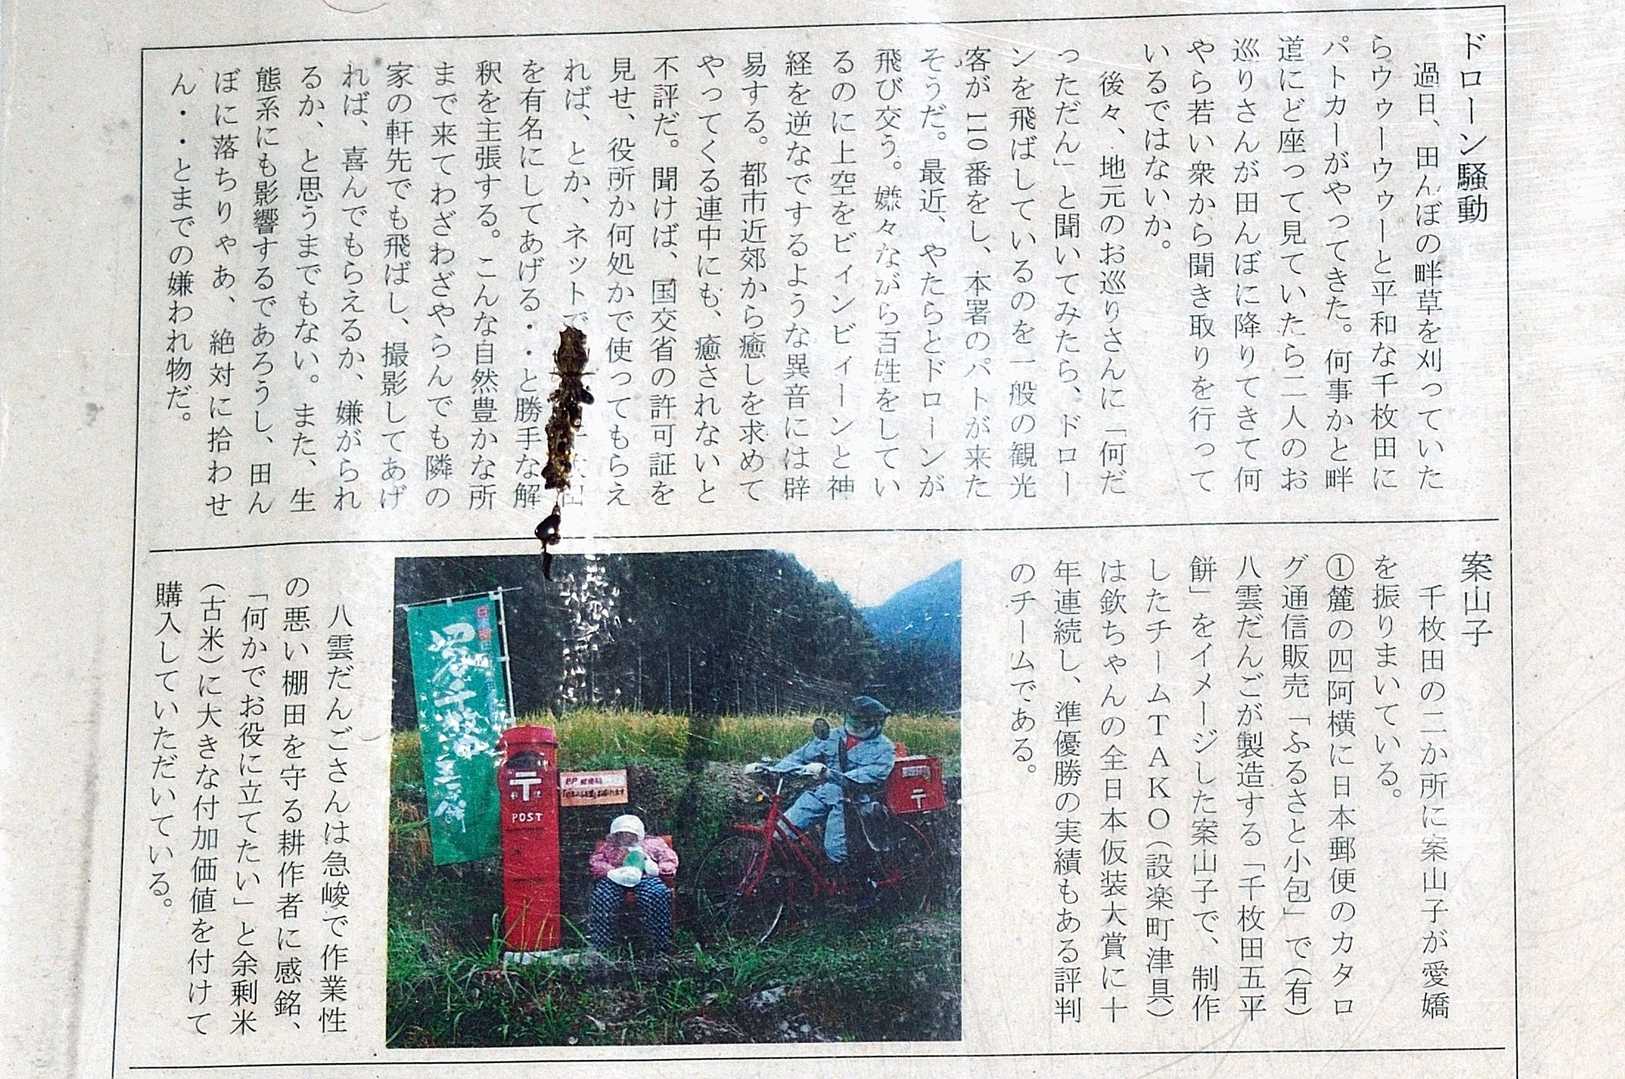 ドローン騒動
過日、田んぼの畔草を刈っていた
らウゥーウゥーと平和な千枚田に
パトカーがやってきた。何事かと畔
道にど座って見ていたら二人のお
巡りさんが田んぼに降りてきて何
やら若い衆から聞き取りを行って
いるではないか。
後々、地元のお巡りさんに「何だ
っただん」と聞いてみたら、ドロー
ンを飛ばしているのを一般の観光
客が110番をし、本署のパトが来た
そうだ。最近、やたらとドローンが
飛び交う。嫌々ながら百姓をしてい
るのに上空をビィンビィーンと神
経を逆なでするような異音には辟
易する。都市近郊から癒しを求めて
やってくる連中にも、癒されないと
不評だ。聞けば、国交省の許可証を
見せ、役所か何処かで使ってもらえ
れば、とか、ネットで 田
を有名にしてあげる・・と勝手な解
釈を主張する。こんな自然豊かな所
まで来てわざわざやらんでも隣の
家の軒先でも飛ばし、撮影してあげ
れば、喜んでもらえるか、嫌がられ
るか、と思うまでもない。また、生
態系にも影響するであろうし、田ん
ぼに落ちりゃあ、絶対に拾わせ
ん・・とまでの嫌われ物だ。
案山子
千枚田の二か所に案山子が愛嬌
を振りまいている。
①麓の四阿横に日本郵便のカタロ
グ通信販売「ふるさと小包」で(有)
八雲だんごが製造する「千枚田五平
餅」をイメージした案山子で、制作
したチームTAKO(設楽町津具)
は欽ちゃんの全日本仮装大賞に十
年連続し、準優勝の実績もある評判
のチームである。
〒
POST
〒
八雲だんごさんは急峻で作業性
の悪い棚田を守る耕作者に感銘、
「何かでお役に立てたい」と余剰米
(古米)に大きな付加価値を付けて
購入していただいている。